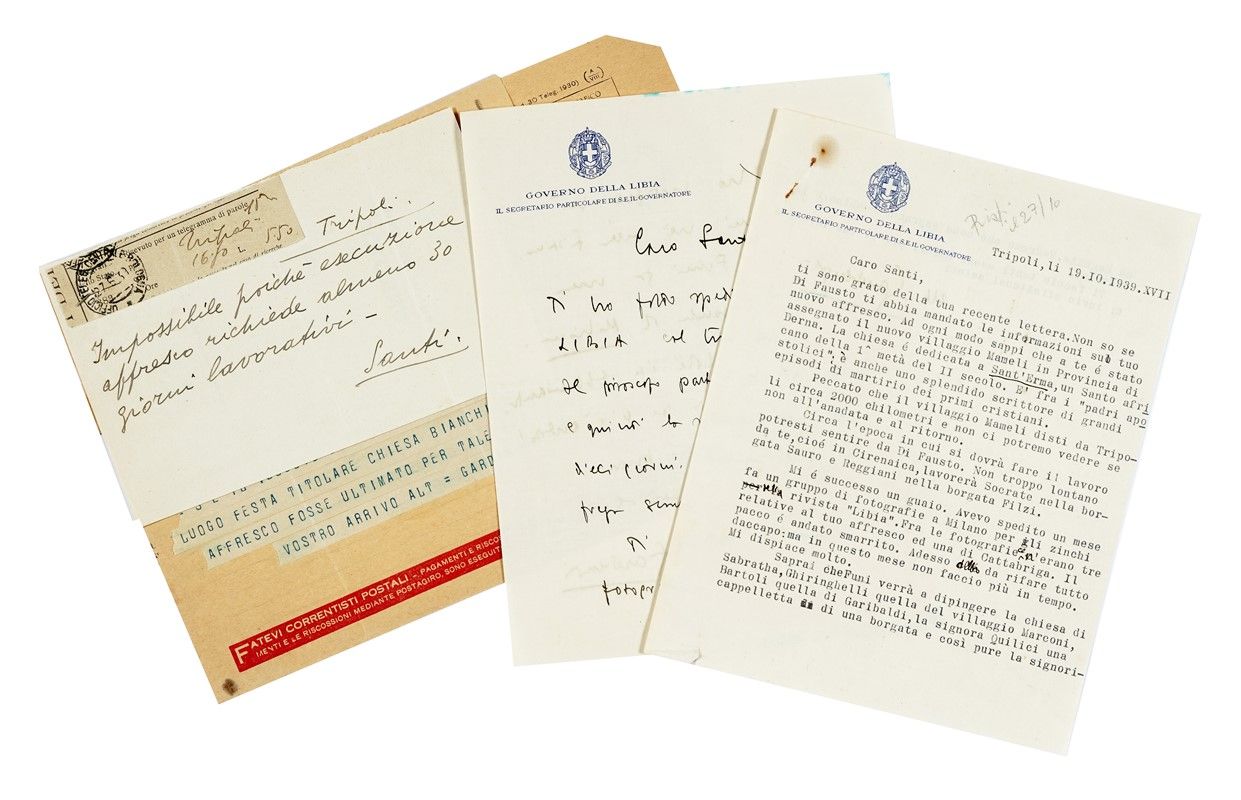 30 Teleg. 1930) (A/VIII)
ricevuto per un telegramma di parole
Tripoli
16 70 L. 550
Ore
Tripoli.
Impossibile poiché esecuzione
affresco richiede almeno 30
giorni lavorativi -
Santi.
LUOGO FESTA TITOLARE CHIESA BIANCHI
AFFRESCO FOSSE ULTIMATO PER TALE
VOSTRO ARRIVO ALT = GARD
FATEVI CORRENTISTI POSTALI - PAGAMENTI E RISCOS
MENTI E LE RISCOSSIONI MEDIANTE POSTAGIRO, SONO ESEGUIT
GOVERNO DELLA LIBIA
IL SEGRETARIO PARTICOLARE DI S.E. IL GOVERNATORE
Caro San
Ti ho fatto spedi
LIBIA col
e quindi la
dieci giorni.
Ti
fotogr
GOVERNO DELLA LIBIA
IL SEGRETARIO PARTICOLARE DI S.E. IL GOVERNATORE
27/10
Tripoli,li 19.IO.1939.XVII
Caro Santi,
ti sono grato della tua recente lettera.Non so se
Di Fausto ti abbia mandato le informazioni sul tuo
nuovo affresco. Ad ogni modo sappi che a te é stato
assegnato il nuovo villaggio Mameli in Provincia di
Derna. La chiesa é dedicata a Sant'Erma,un Santo afri
cano della 1° metà del II secolo. E' fra i "padri apo
stolici"; è anche uno splendido scrittore di grandi
episodi di martirio dei primi cristiani.
Peccato che il villaggio Mameli disti da Tripo-
li circa 2000 chilometri e non ci potremo vedere se
non all'anadata e al ritorno.
Circa l'epoca in cui si dovrà fare il lavoro
potresti sentire da Di Fausto. Non troppo lontano
da te,cioé in Cirenaica,lavorerà Socrate nella bor-
gata Sauro e Reggiani nella borgata Filzi.
Mi é successo un guaio. Avevo spedito un mese
fa un gruppo di fotografie a Milano per gli zinchi
rivista "Libia".Fra le fotografie n'erano tre
relative al tuo affresco ed una di Cattabriga. Il
pacco é andato smarrito. Adesso da rifare tutto
daccapo:ma in questo mese non faccio più in tempo.
Mi dispiace molto.
Saprai cheFuni verrà a dipingere la chiesa di
Sabratha,Ghiringhelli quella del villaggio Marconi,
Bartoli quella di Garibaldi,la signora Quilici una
cappelletta di una borgata e così pure la signori-